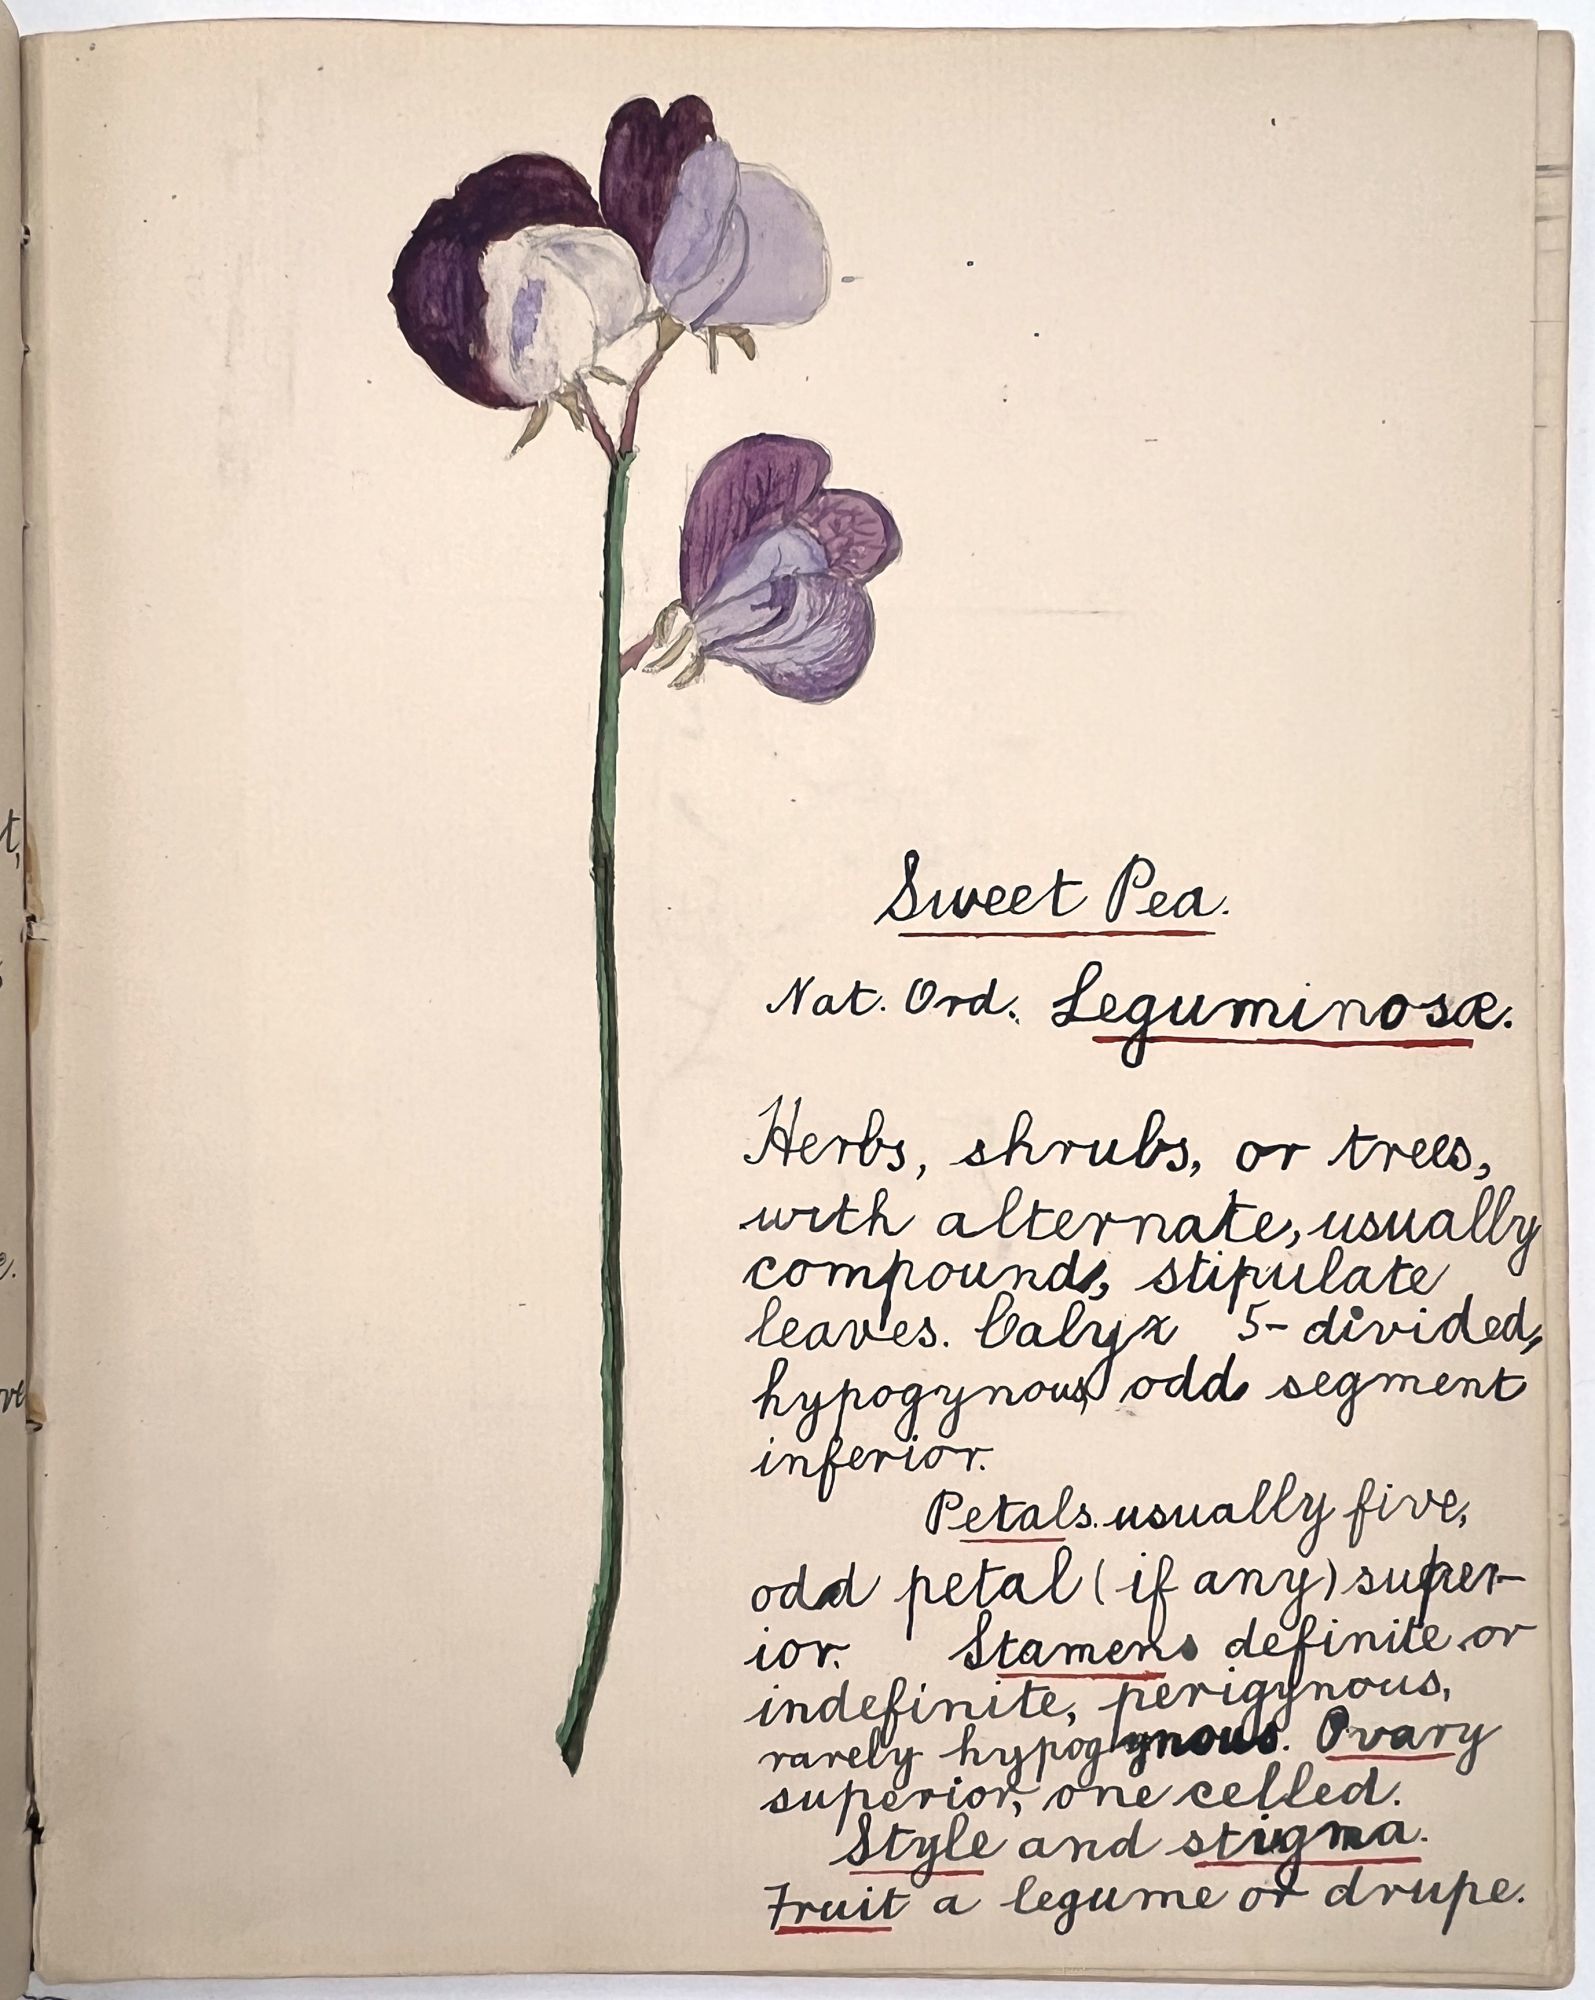 Sweet Pea.
Nat. Ord. Leguminosæ.
Herbs, shrubs, or trees,
with alternate, usually
compound, stipulate
leaves. Calyx 5-divided,
hypogynous, odd segment
inferior.
Petals. usually five,
odd petal (if any) super-
ior. Stamens definite or
indefinite, perigynous,
rarely hypogynous. Ovary
superior, one celled.
Style and stigma.
Fruit a legume or drupe.